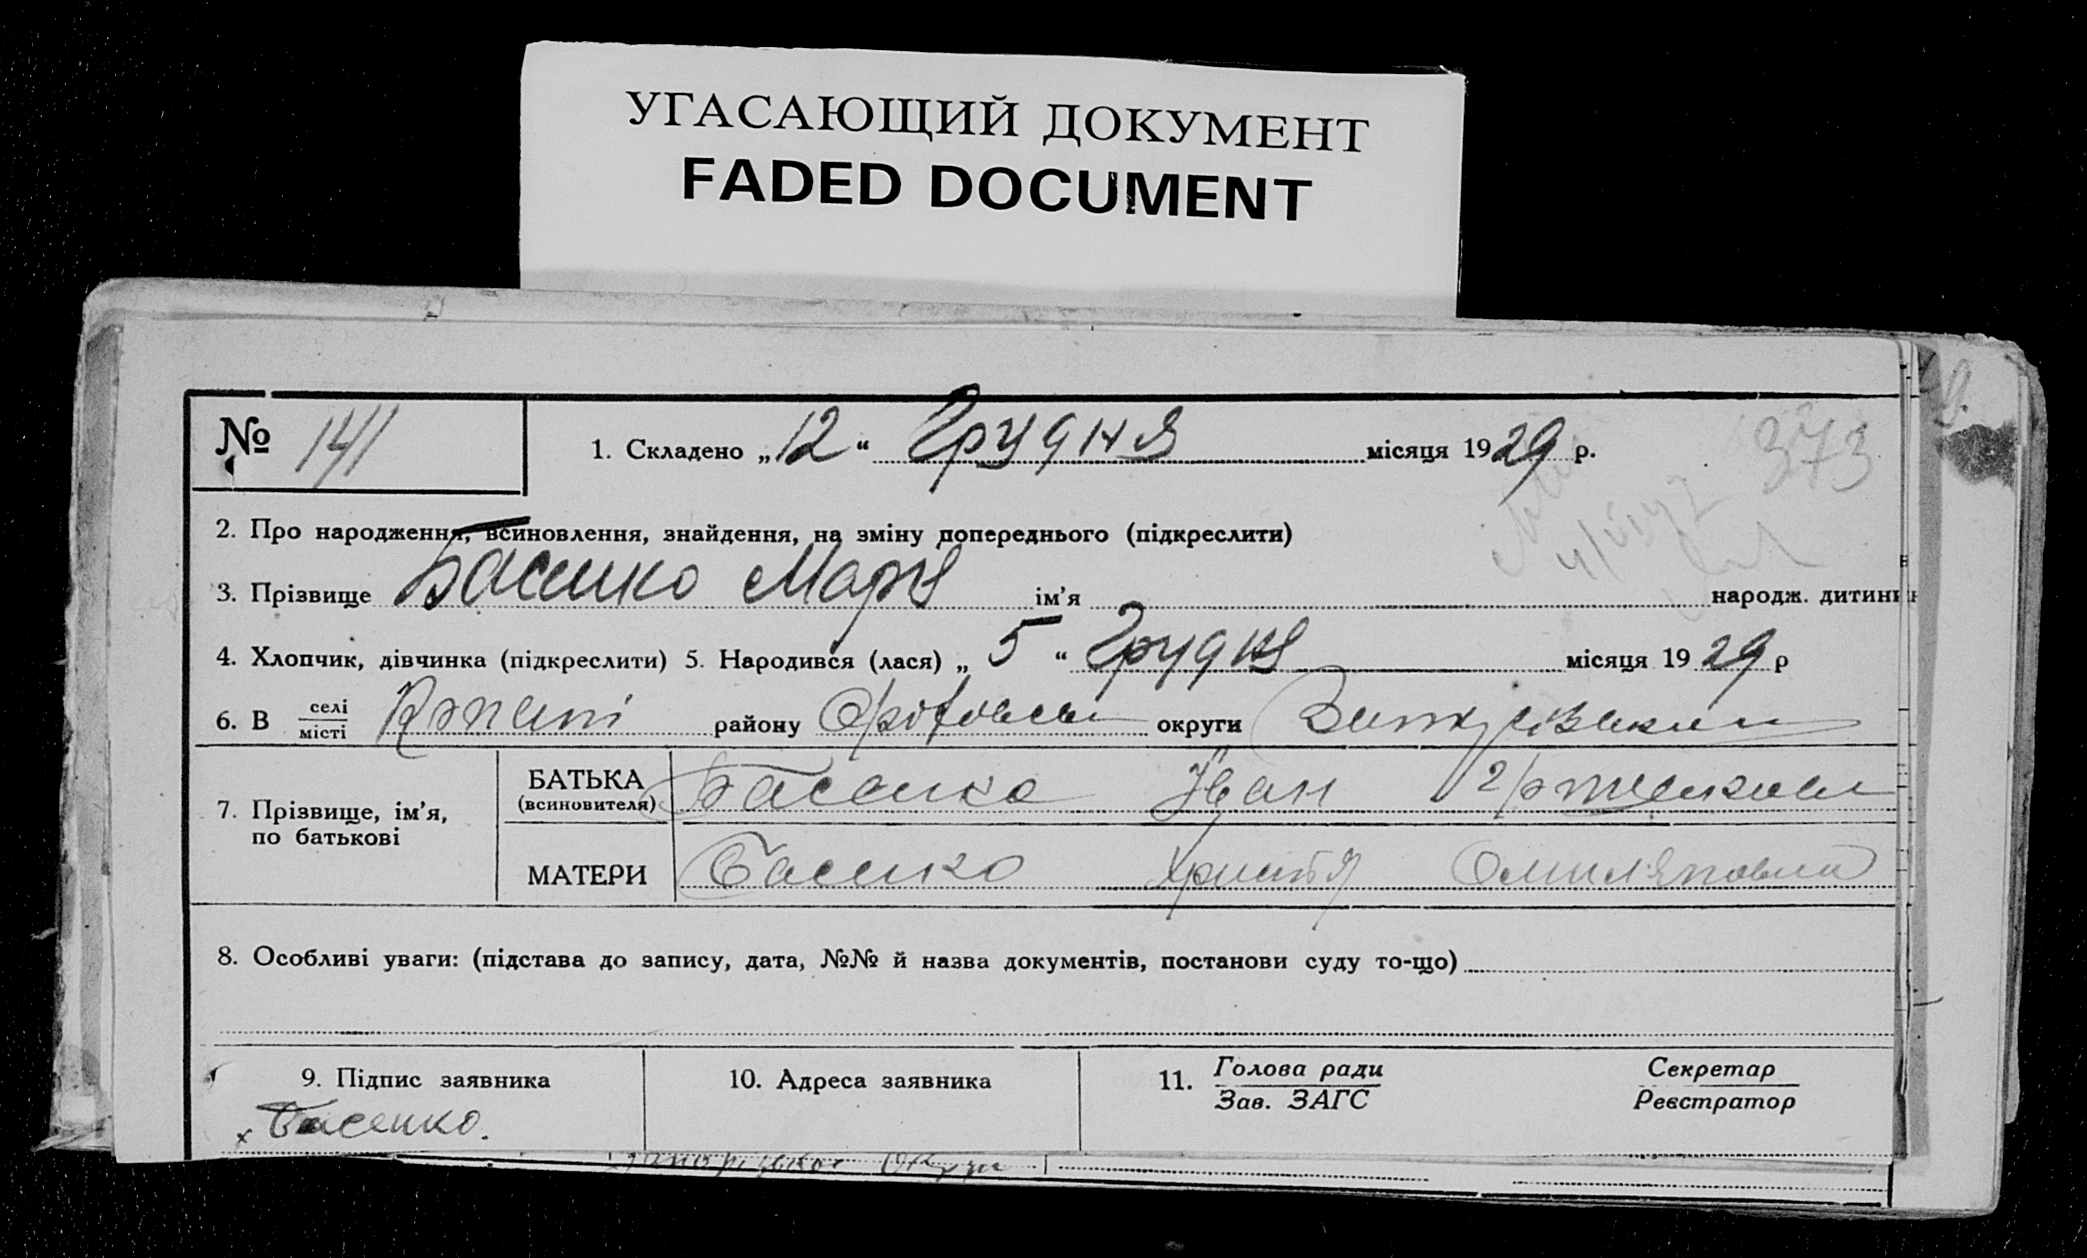 УГАСАЮЩИЙ ДОКУМЕНТ
FADED DOCUMENT
№ 141
1. Складено „12“ Грудня місяця 1929 р.
373
2. Про народження, всиновлення, знайдення, на зміну попереднього (підкреслити)
3. Прізвище Басенко Марія ім’я народж. дитини
4. Хлопчик, дівчинка (підкреслити) 5. Народився (лася) „5“ Грудня місяця 1929 р
6. В селі/місті Копані району округи
7. Прізвище, ім’я, по батькові
БАТЬКА (всиновителя) Басенко Іван
МАТЕРИ Басенко Христя
8. Особливі уваги: (підстава до запису, дата, №№ й назва документів, постанови суду то-що)
9. Підпис заявника
10. Адреса заявника
11. Голова ради
Зав. ЗАГС
Секретар
Реєстратор
х Басенко.